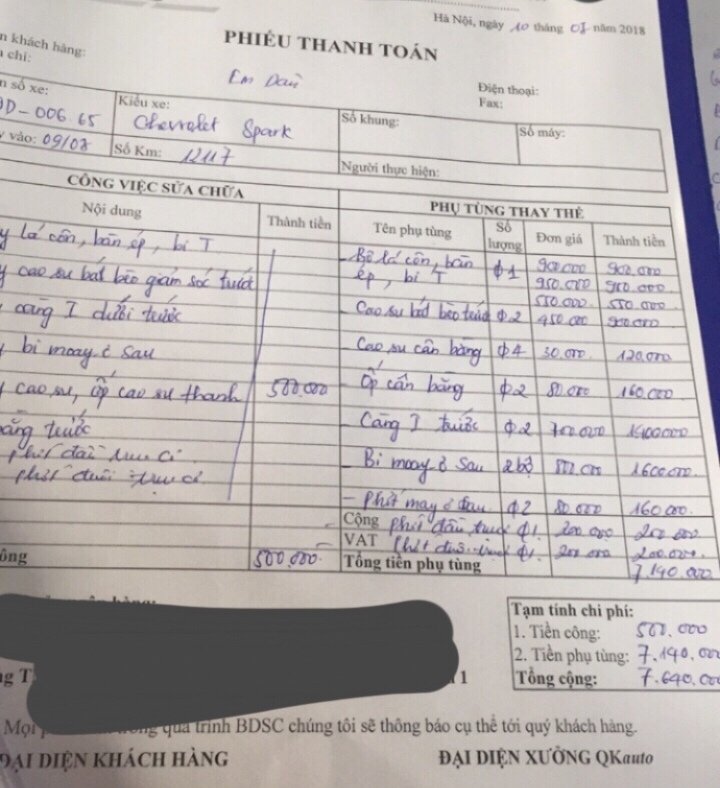 Hà Nội, ngày 10 tháng 08 năm 2018
PHIẾU THANH TOÁN
n khách hàng:
chỉ:
Điện thoại:
Fax:
n số xe:
D-006.65
Kiểu xe:
Chevrolet Spark
Số khung:
Số máy:
y vào: 09/08
Số Km: 12117
Người thực hiện:
CÔNG VIỆC SỬA CHỮA
PHỤ TÙNG THAY THẾ
Nội dung
Thành tiền
Tên phụ tùng
Số lượng
Đơn giá
Thành tiền
y lá côn, bàn ép, bi T
y cao su bát bèo giảm sóc trước
càng I dưới trước
bi moay ơ sau
y cao su, ốp cao su thanh 500.000
bằng trước
phớt đầu trục cơ
phớt đuôi trục cơ
ông 500.000
- Bộ lá côn, bàn 1 900.000 900.000
ép, bi T 950.000 950.000
550.000 550.000
Cao su bát bèo trước 2 450.000 900.000
Cao su cân bằng 4 30.000 120.000
Ốp cân bằng 2 80.000 160.000
Càng I trước 2 700.000 1400000
Bi moay ơ sau 2 bộ 800.000 1600.000
- Phớt may ơ 2 80.000 160.000
Cộng phớt đầu trục 1 200.000 200.000
VAT phớt đuôi trục 1 200.000 200.000
Tổng tiền phụ tùng 7.140.000
Tạm tính chi phí:
1. Tiền công: 500.000
2. Tiền phụ tùng: 7.140.000
Tổng cộng: 7.640.000
g T
1
Mọi trong quá trình BDSC chúng tôi sẽ thông báo cụ thể tới quý khách hàng.
ĐẠI DIỆN KHÁCH HÀNG
ĐẠI DIỆN XƯỞNG QKauto